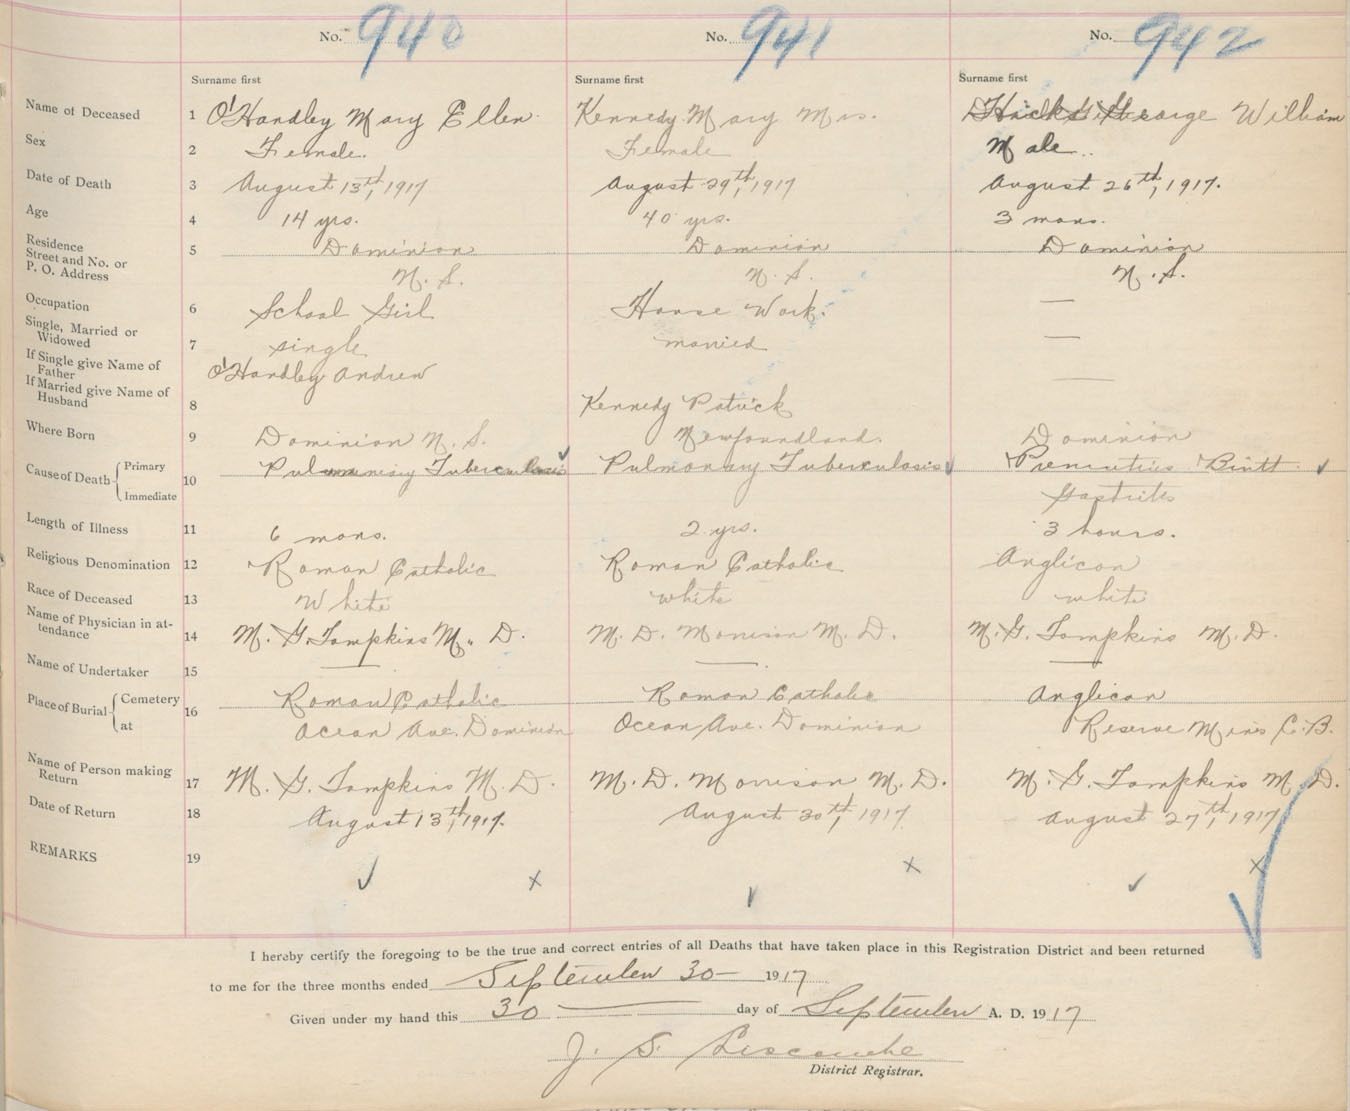 No. 940
No. 941
No. 942
Surname first
Surname first
Surname first
Name of Deceased 1 O'Handley Mary Ellen Kennedy Mary Mrs. George William
Sex 2 Female. Female Male..
Date of Death 3 August 13th, 1917 August 29th, 1917 August 26th, 1917.
Age 4 14 yrs. 40 yrs. 3 mons.
Residence Street and No. or P. O. Address 5 Dominion Dominion Dominion
N. S. N. S. N. S.
Occupation 6 School Girl House Work. —
Single, Married or Widowed 7 single married —
If Single give Name of Father O'Handley Andrew —
If Married give Name of Husband 8 Kennedy Patrick
Where Born 9 Dominion N. S. Newfoundland. Dominion
Cause of Death Primary 10 Pulmonary Tuberculosis ✓ Pulmonary Tuberculosis ✓ ✓
Immediate Gastritis
Length of Illness 11 6 mons. 2 yrs. 3 hours.
Religious Denomination 12 Roman Catholic Roman Catholic Anglican
Race of Deceased 13 White white white
Name of Physician in at-tendance 14 M. G. Tompkins M. D. M. D. Morrison M. D. M. G. Tompkins M. D.
Name of Undertaker 15 — — —
Place of Burial Cemetery 16 Roman Catholic Roman Catholic Anglican
at Ocean Ave. Dominion Ocean Ave. Dominion Reserve Mines C. B.
Name of Person making Return 17 M. G. Tompkins M. D. M. D. Morrison M. D. M. G. Tompkins M. D.
Date of Return 18 August 13th, 1917. August 30th, 1917 August 27th, 1917
REMARKS 19
✓ x ✓ x ✓ x ✓
I hereby certify the foregoing to be the true and correct entries of all Deaths that have taken place in this Registration District and been returned
to me for the three months ended September 30— 1917
Given under my hand this 30 — day of September A. D. 1917
J. S.
District Registrar.